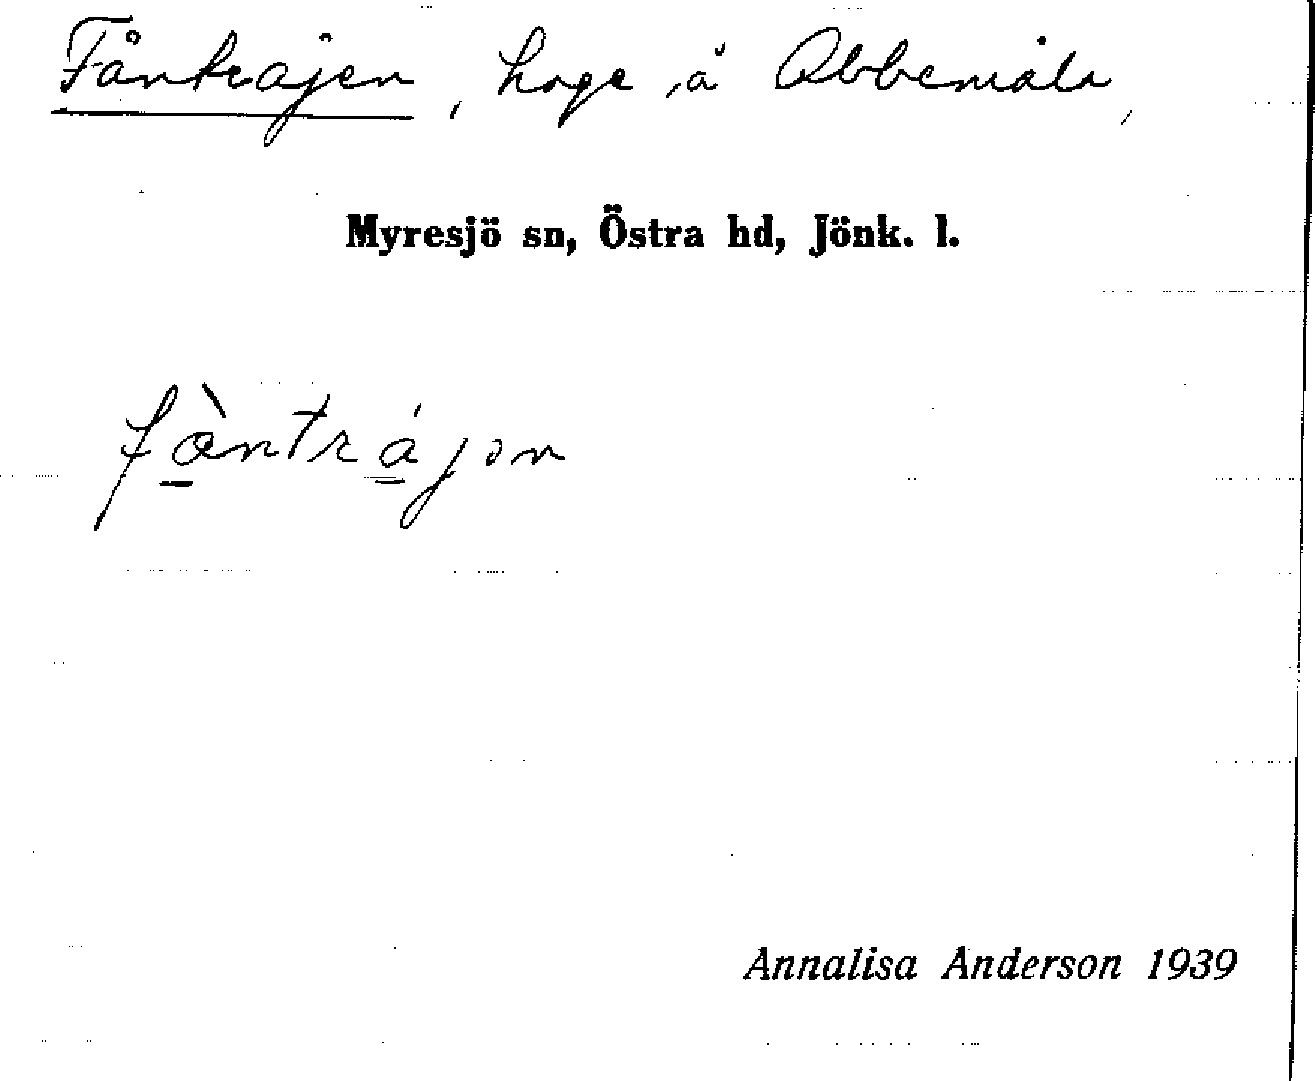 Fånträjen, hage å Abbemåla,
Myresjö sn, Östra hd, Jönk. l.
fàntrájən
Annalisa Anderson 1939